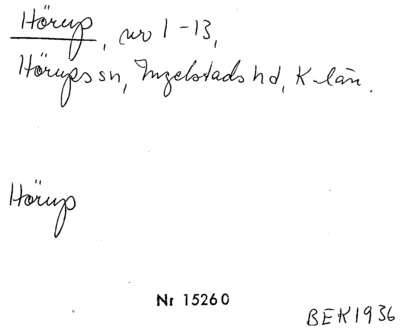 Hörup, nr 1-13,
Hörups sn, Ingelstads hd, K-län.
Hörup
Nr 15260
BEK1936